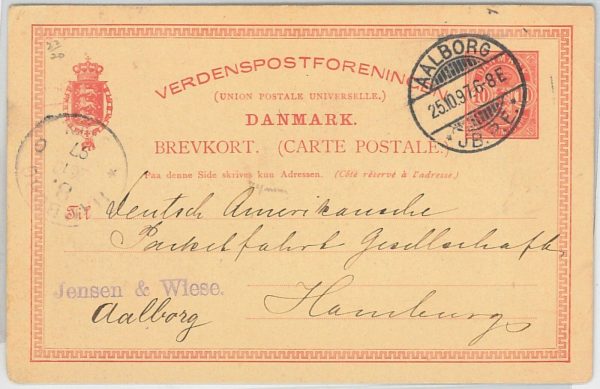 VERDENSPOSTFORENINGEN
(UNION POSTALE UNIVERSELLE.)
DANMARK.
BREVKORT. (CARTE POSTALE.)
Paa denne Side skrives kun Adressen. (Côté réservé à l'adresse.)
AALBORG
25.10.97. 6-8E
JB.P.E.
10
97
Til Deutsch Amerikansche
Packetfahrt Gesellschaft
Jensen & Wiese.
Hamburg
Aalborg